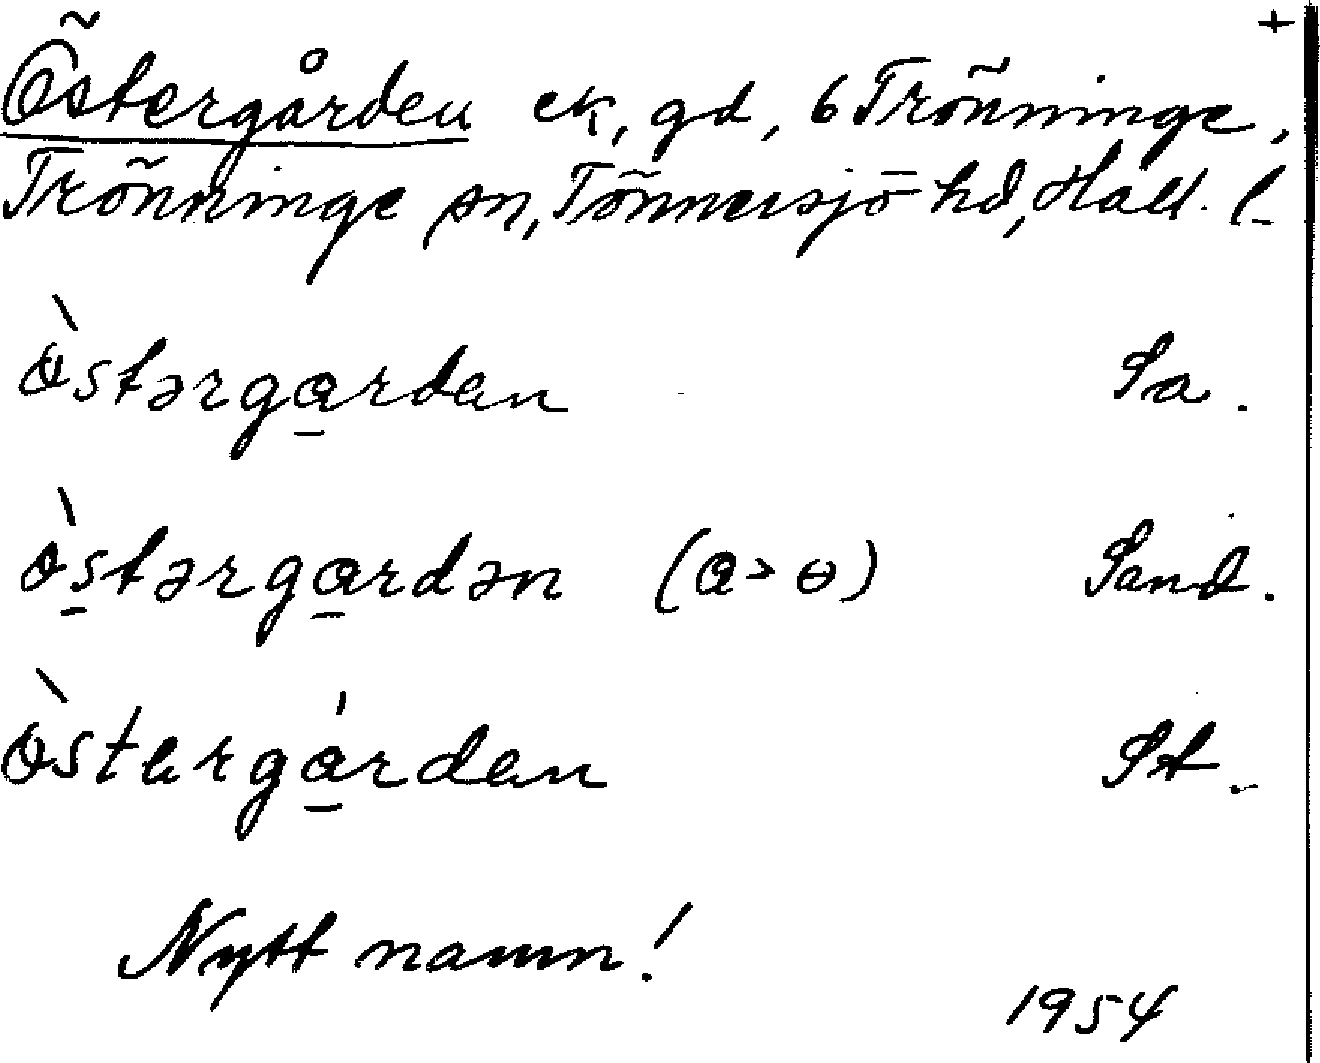 +
Östergården ek, gd, 6 Trönninge,
Trönninge sn, Tönnersjö hd, Hall. l.
ɵ̀stərga̠rden Sa.
ɵ̀s̠tərga̠rdən (a > ɵ) Sand.
ɵ̀sterga̠̍rden St.
Nytt namn!
1954